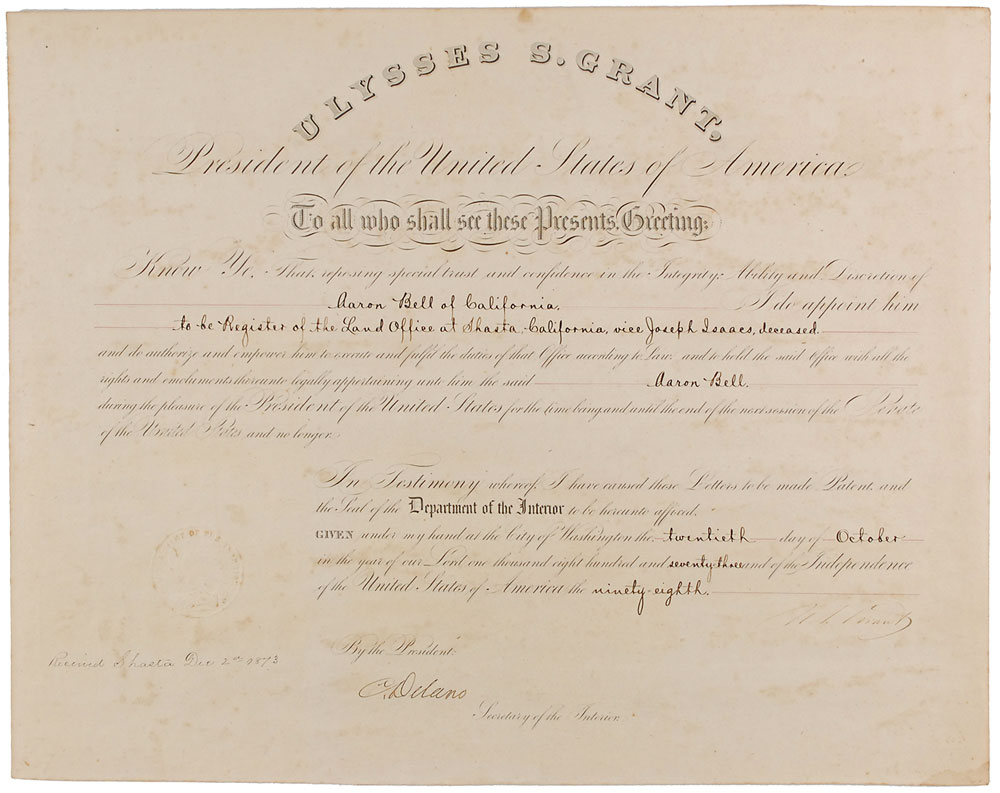 ULYSSES S. GRANT,
President of the United States of America.
To all who shall see these Presents, Greeting:
Know Ye, That, reposing special trust and confidence in the Integrity, Ability and Discretion of
Aaron Bell of California, I do appoint him
to be Register of the Land Office at Shasta, California, vice Joseph Isaacs, deceased.
and do authorize and empower him to execute and fulfil the duties of that Office according to Law, and to hold the said Office with all the
rights and emoluments thereunto legally appertaining unto him the said Aaron Bell.
during the pleasure of the President of the United States for the time being and until the end of the next session of the Senate
of the United States and no longer.
In Testimony whereof, I have caused these Letters to be made Patent, and
the Seal of the Department of the Interior to be hereunto affixed.
GIVEN under my hand at the City of Washington the twentieth day of October
in the year of our Lord one thousand eight hundred and seventy three and of the Independence
of the United States of America the ninety-eighth.
U. S. Grant
By the President:
Received Shasta Dec 2nd 1873
C. Delano
Secretary of the Interior.